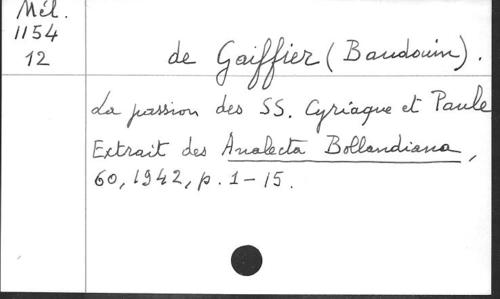 Mél.
1154
12
de Gaiffier (Baudouin).
La passion des SS. Cyriaque et Paule
Extrait des Analecta Bollandiana,
60, 1942, p. 1-15.